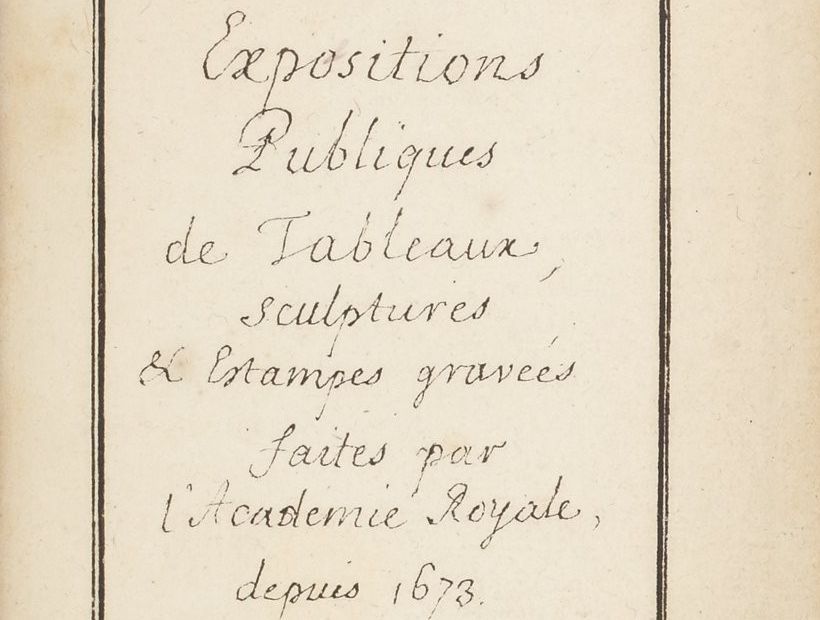 Expositions
Publiques
de Tableaux,
sculptures
& Estampes gravées
faites par
l'Academie Royale,
depuis 1673.